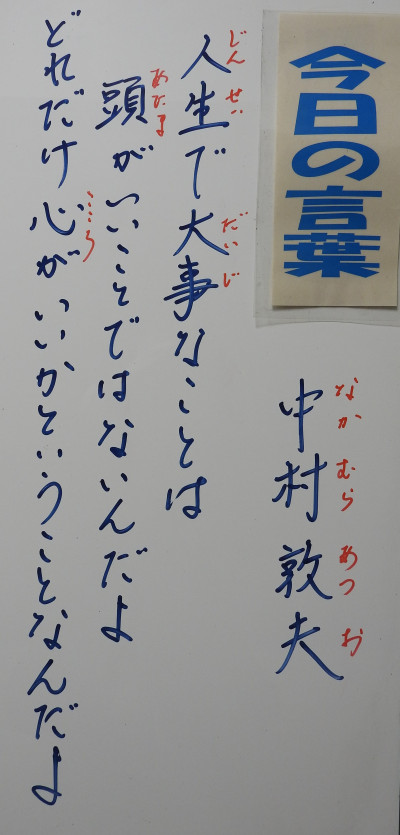 今日の言葉
中村敦夫
なかむらあつお
人生で大事なことは
じんせいだいじ
頭がいいことではないんだよ
あたま
どれだけ心がいいかということなんだよ
こころ